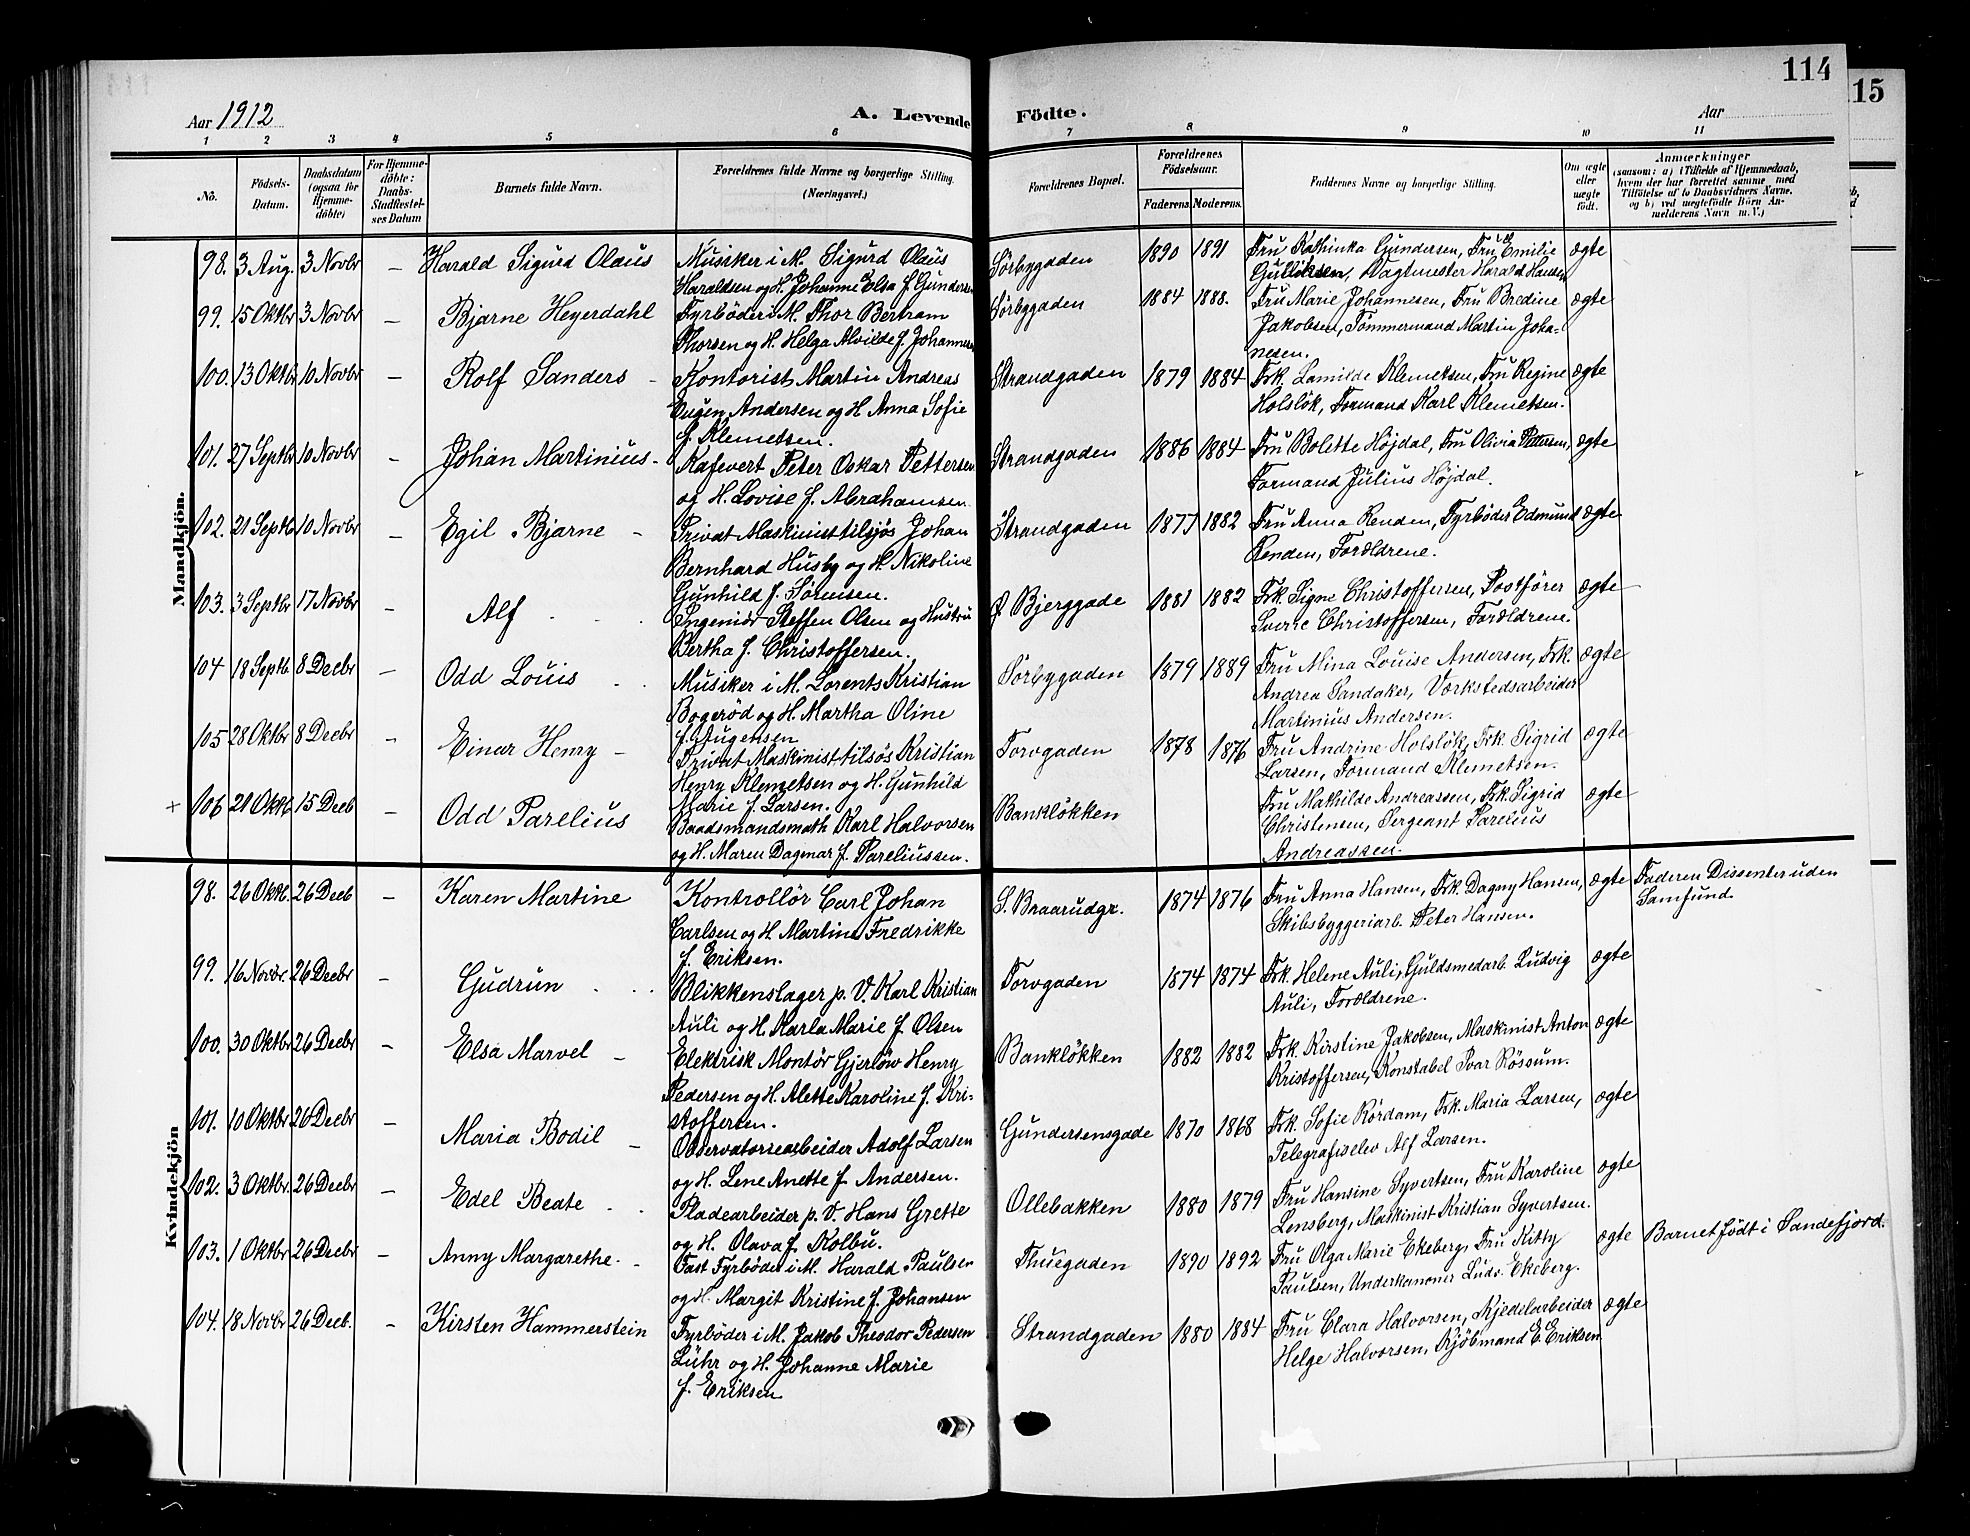 114
15
Aar 1912
A. Levende Födte.
Aar
1 2 3 4 5 6 7 8 9 10 11
No.
Födsels-Datum.
Daabsdatum (ogsaa for Hjemme-döbte)
For Hjemme-döbte: Daabs-Stadfæstel-ses Datum
Barnets fulde Navn.
Forældrenes fulde Navne og borgerlige Stilling. (Næringsvei.)
Forældrenes Bopæl.
Forældrenes Födselsaar.
Faderens. Moderens.
Faddernes Navne og borgerlige Stilling.
Om ægte eller uægte födt.
Anmærkninger
(saasom: a) i Tilfælde af Hjemmedaab,
hvem der har forrettet samme med
Tilföielse af to Daabsvidners Navne.
og b) ved uegtefödte Börn An-
melderens Navn m. V.)
Mandkjön.
98. 3 Aug. 3 Novbr — Harald Sigurd Olaus Musiker i M. Sigurd Olaus Sörbygaden 1890 1891 Fru Kathinka Gundersen, Fru Emilie ægte
Haraldsen og H. Johanne Elsa f. Gundersen Gulliksen, Vagtmester Harald Hansen
99. 15 Oktbr 3 Novbr — Bjarne Heyerdahl Fyrböder i M. Thor Bertram Sörbygaden 1884 1888. Fru Marie Johannesen, Fru Bredine ægte
Thorsen og H. Helga Alvilde f. Johannesen Jakobsen, Tömmermand Martin Joha-
nesen.
100. 13 Oktbr 10 Novbr — Rolf Sanders - Kontorist Martin Andreas Strandgaden 1879 1884 Frk. Lamilde Klemetsen, Fru Regine ægte
Eugen Andersen og H. Anna Sofie Holslök, Formand Karl Klemetsen.
f. Klemetsen.
101. 27 Septbr 10 Novbr — Johan Martinius - Kafevert Peter Oskar Pettersen Strandgaden 1886 1884 Fru Bolette Höjdal, Fru Olivia Pettersen, ægte
og H. Lovise f. Abrahamsen. Formand Julius Höjdal.
102. 21 Septb 10 Novbr — Egil Bjarne - Privat Maskinist tilsjös Johan Strandgaden 1877 1882 Fru Anna Renden, Fyrböder Edmund ægte
Bernhard Husby og H. Nikoline Renden, Forældrene.
Gunhild f. Sörensen.
103. 3 Septbr 17 Novbr — Alf Ingeniör Steffen Olsen og Hustru Ø Bjerggade 1881 1882 Frk. Signe Christoffersen, Postförer ægte
Bertha f. Christoffersen. Sverre Christoffersen, Forældrene.
104 18 Septb. 8 Decbr — Odd Louis Musiker i M. Lorents Kristian Sörbygaden 1879 1889 Fru Mina Louise Andersen, Frk. ægte
Bogeröd og H. Martha Oline Andrea Sandaker, Værkstedsarbeider
f. Augensen Martinius Andersen.
105 28 Oktbr 8 Decbr - Einar Henry - Privat Maskinist tilsös Kristian Torvgaden 1878 1876 Fru Andrine Holslök, Frk. Sigrid ægte
Henry Klemetsen og H. Gunhild Larsen, Formand Klemetsen.
Marie f. Larsen.
+ 106 21 Oktb 15 Decb - Odd Parelius Baadsmandsmath Karl Halvorsen Banklökken Fru Mathilde Andreassen, Frk. Sigrid ægte
og H. Maren Dagmar f. Pareliussen. Christensen, Sergeant Parelius
Andreassen.
Kvindekjön
98. 26 Oktb. 26 Decb — Karen Martine Kontrollör Carl Johan S. Braarudgr. 1874 1876 Fru Anna Hansen, Frk. Dagny Hansen, ægte Faderen Dissenter uden
Carlsen og H. Martine Fredrikke Skibsbyggeriarb. Peter Hansen. Samfund.
f. Eriksen.
99. 16 Novbr. 26 Decbr — Gudrun Blikkenslager p. V. Karl Kristian Torvgaden 1874 1874 Frk. Helene Auli, Guldsmedarb. Ludvig ægte
Auli og H. Karla Marie f. Olsen Auli, Forældrene.
100. 30 Oktbr 26 Decbr — Elsa Marvel - Elektrisk Montör Gjerlöw Henry Banklökken 1882 1882 Frk. Kirstine Jakobsen, Maskinist Anton ægte
Pedersen og H. Alette Karoline f. Kri- Kristoffersen, Konstabel Ivar Rössum.
stoffersen.
101. 10 Oktbr 26 Decbr — Maria Bodil - Observatorsearbeider Adolf Larsen Gundersensgade 1870 1868 Frk. Sofie Rördam, Frk. Maria Larsen, ægte
og H. Lene Anette f. Andersen. Telegrafiselev Alf Larsen.
102. 3 Oktbr. 26 Decbr — Edel Beate Pladearbeider p. V. Hans Grette Ollebakken 1880 1879 Fru Hansine Syvertsen, Fru Karoline ægte
og H. Olava f. Kolbu. Lensberg, Maskinist Kristian Syvertsen.
103. 1 Oktbr 26 Decbr — Anny Margarethe. Fast Fyrböder i M. Harald Paulsen Thuegaden 1890 1892 Fru Olga Marie Ekeberg, Fru Kitty ægte Barnet födt i Sandefjord.
og H. Margit Kristine f. Johansen Paulsen, Underkanoner Ludv. Ekeberg.
104. 18 Novbr 26 Decb. — Kirsten Hammerstein Fyrböder i M. Jakob Theodor Pedersen Strandgaden 1880 1884 Fru Clara Halvorsen, Kjedelarbeider ægte
Lühr og H. Johanne Marie Helge Halvorsen, Kjöbmand E. Eriksen
f. Eriksen